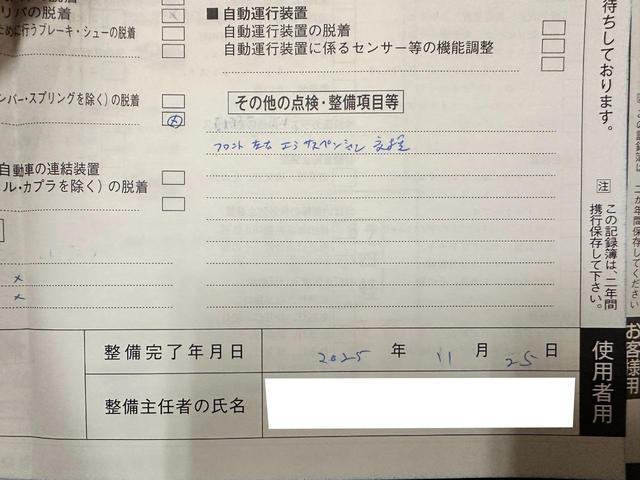 リパの脱着
ために行うブレーキ・シューの脱着
ンバー・スプリングを除く)の脱着
自動車の連結装置
ル・カプラを除く)の脱着
■自動運行装置
自動運行装置の脱着
自動運行装置に係るセンサー等の機能調整
その他の点検・整備項目等
フロント 左右 エアサスペンション 交換
整備完了年月日 2025 年 11 月 25 日
整備主任者の氏名
待ちしております。
注 この記録簿は、二年間
携行保存して下さい。
使用者用
お客様用